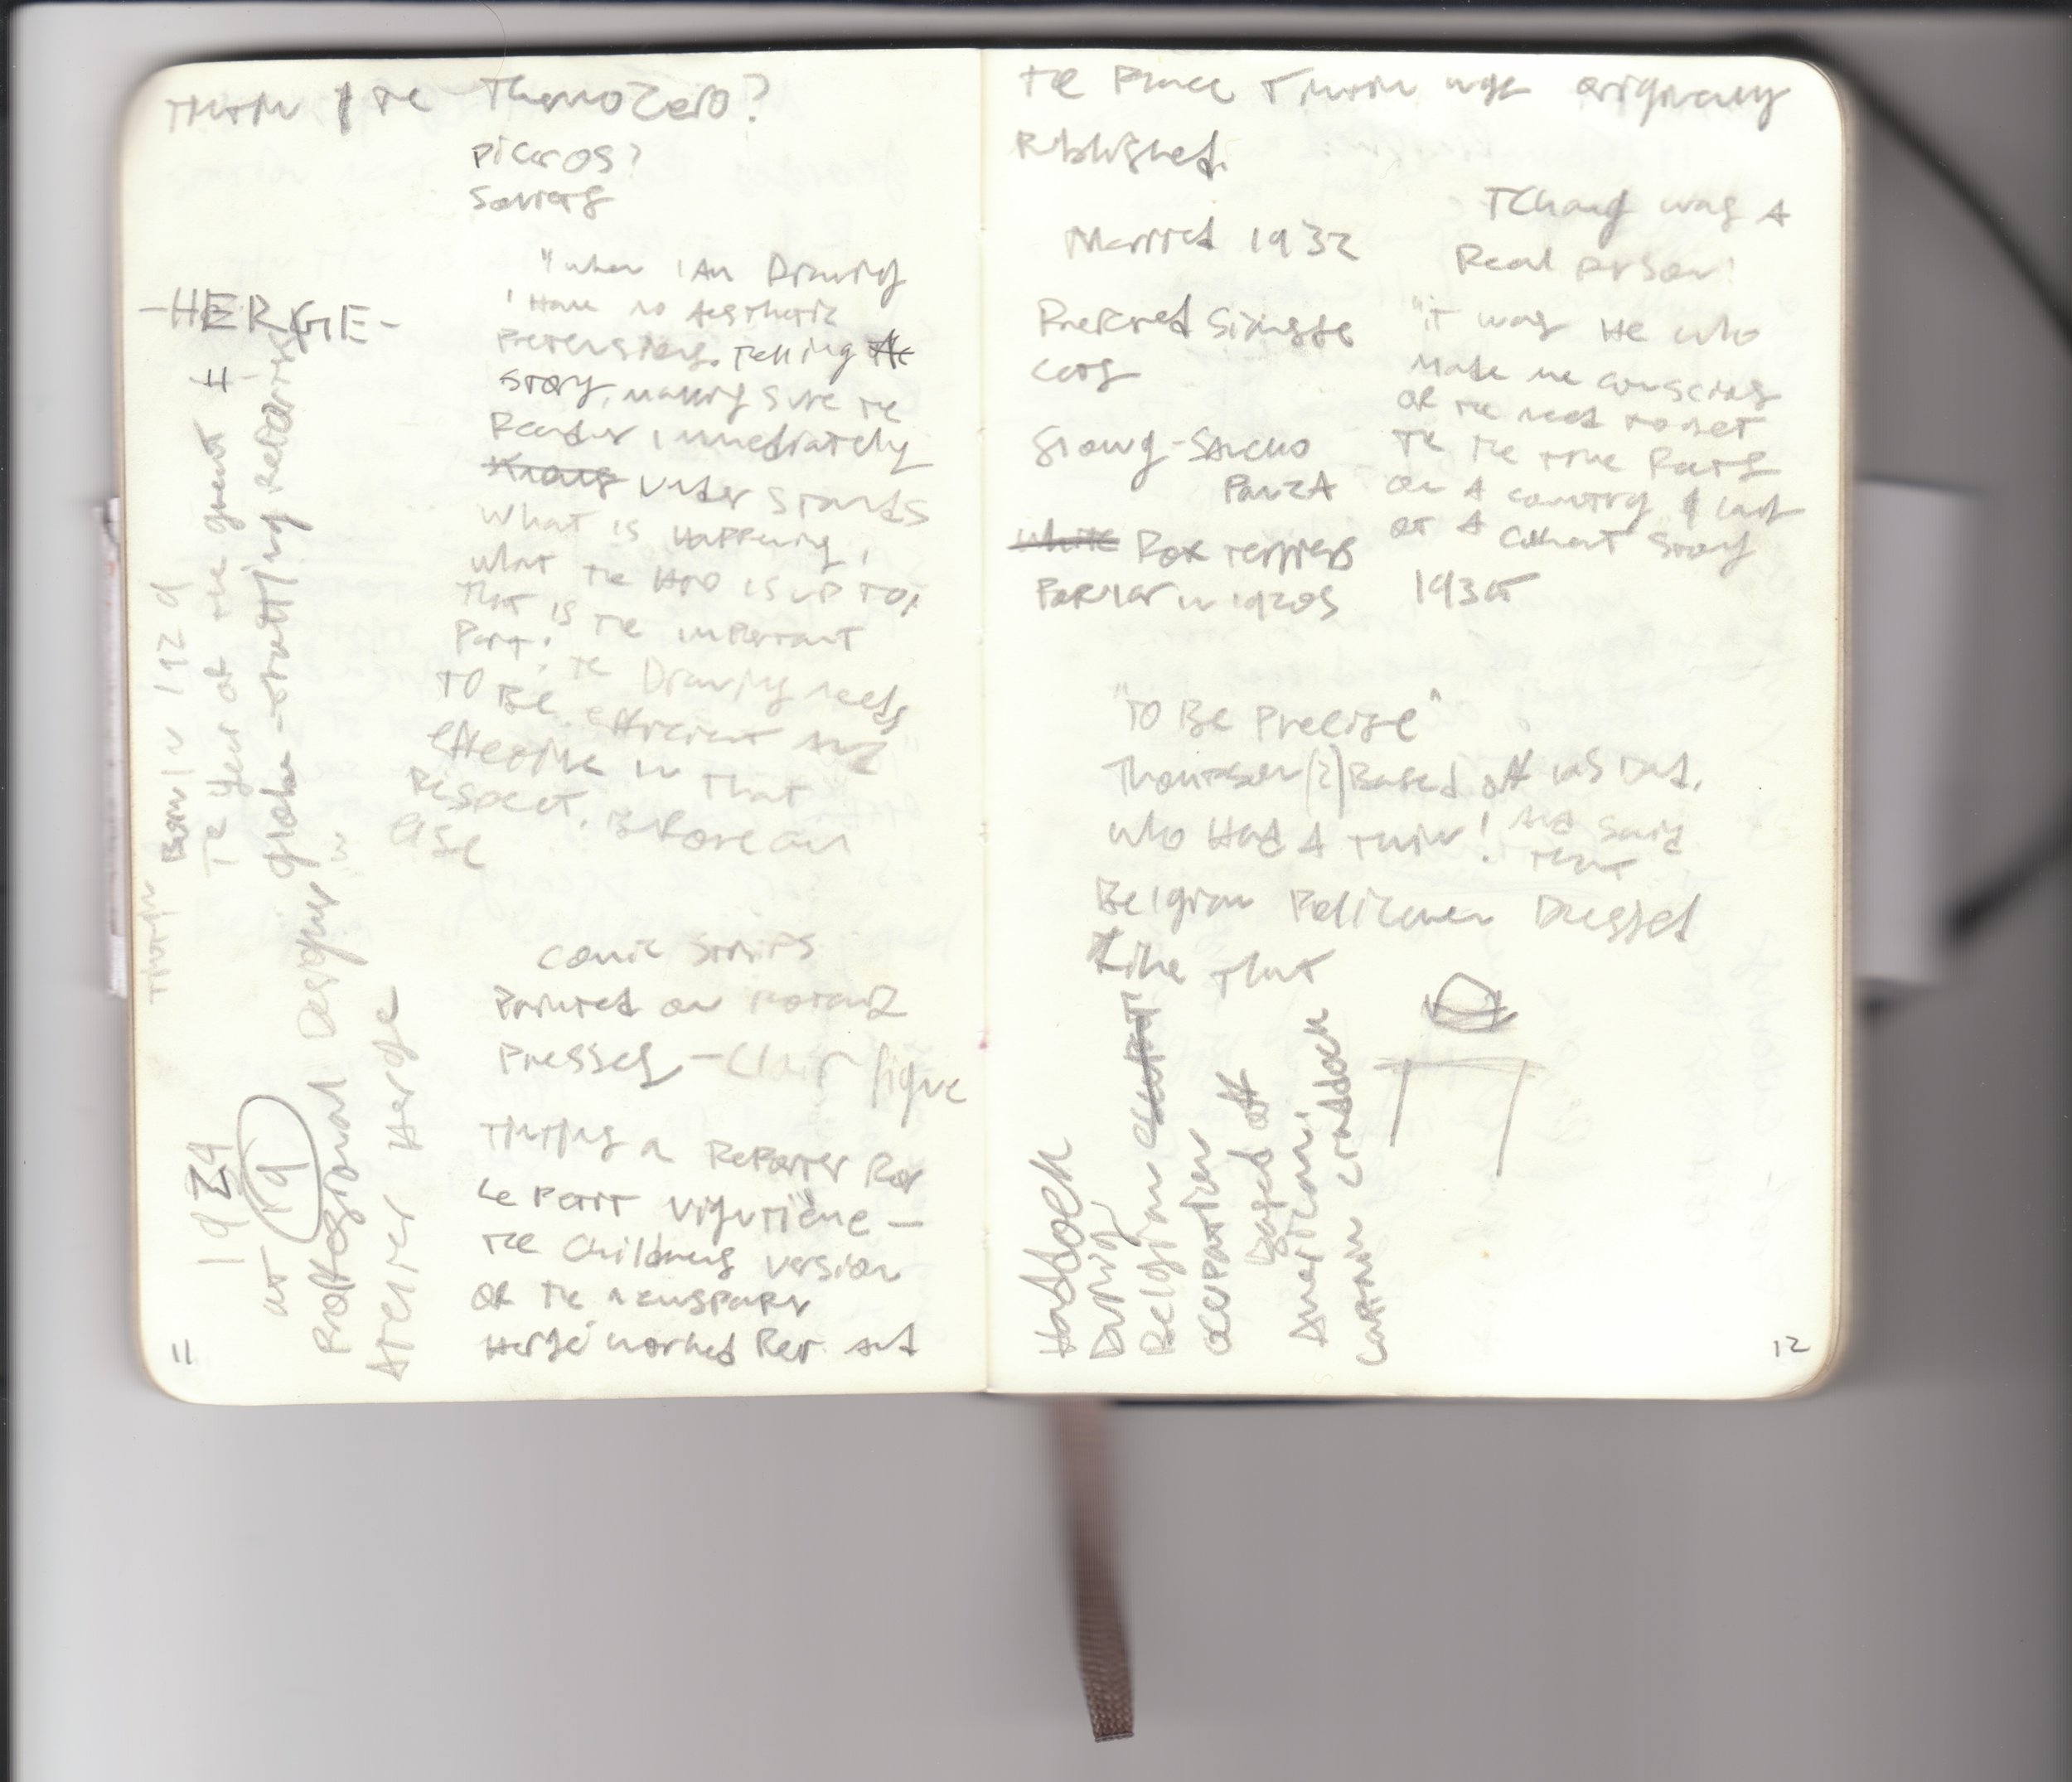 Tintin & the ThermoZero?
Picaros?
Soviets
-HERGE-
"when I Am Drawing
I Have no Aesthetic
Pretensions. Telling the
story, making sure the
Reader immediately
Knows understands
what is Happening,
what the Hero is up to,
that is the important
Part. The Drawing needs
to Be efficient and
effective in that
Respect. Before all
else
comic strips
Printed on rotary
Presses - Clair ligne
Tintin's a Reporter For
Le Petit Vigntiène -
the Childrens version
of the newspaper
Hergé worked For and
Tintin Born in 1929
The Year of the great
globe-trotting reporters
1924
at 19
Professional Designer
Atelier Herge
11
the Place Tintin was originally
Published.
Married 1932
Preferred Siamese
Cats
Snowy - Sancho
Panza
White Fox terriers
Popular in 1920s
Tchang was A
Real person!
"it was He who
made me conscious
of the need to get
the true facts
on A country &
at A coherent story
1935
"To Be Precise"
Thompson (2) Based off his Dad,
who Had A Twin! And said
that
Belgian Policemen Dressed
Like that
Haddock
During
Belgian
occupation
Based off
American
captain craddock
12